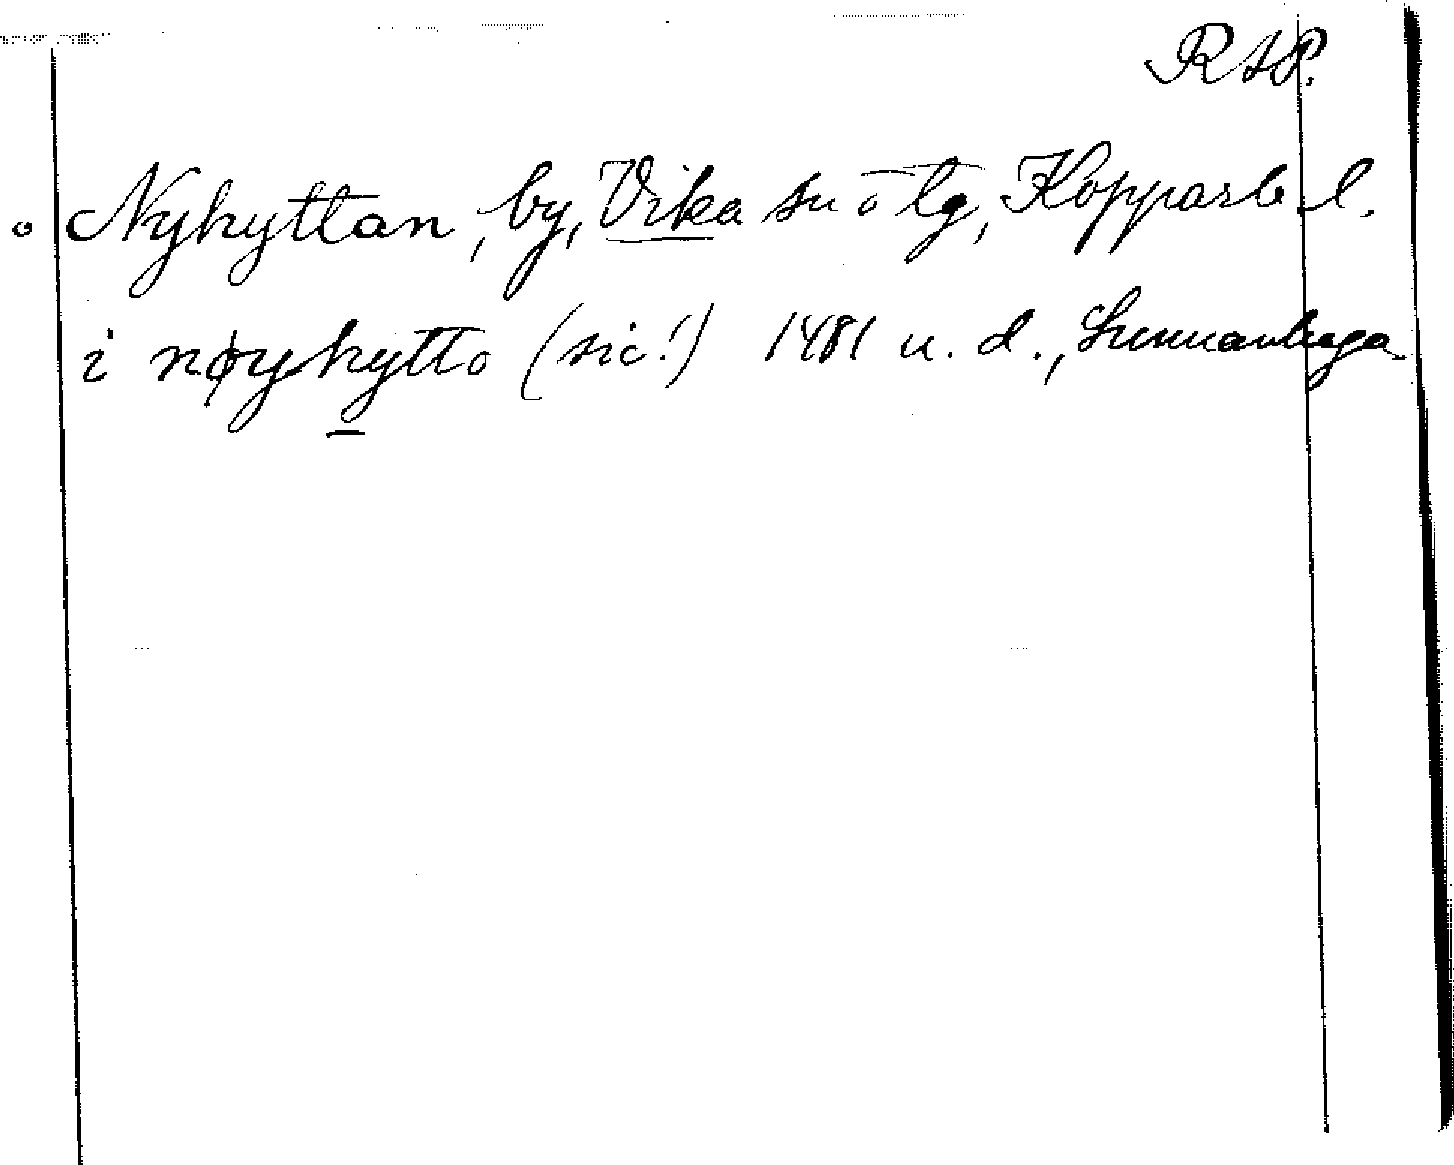 RAP.
Nyhyttan, by, Vika sn o tg, Kopparb l.
i nøyhytto (sic!) 1481 u. d., Sunnanhaga